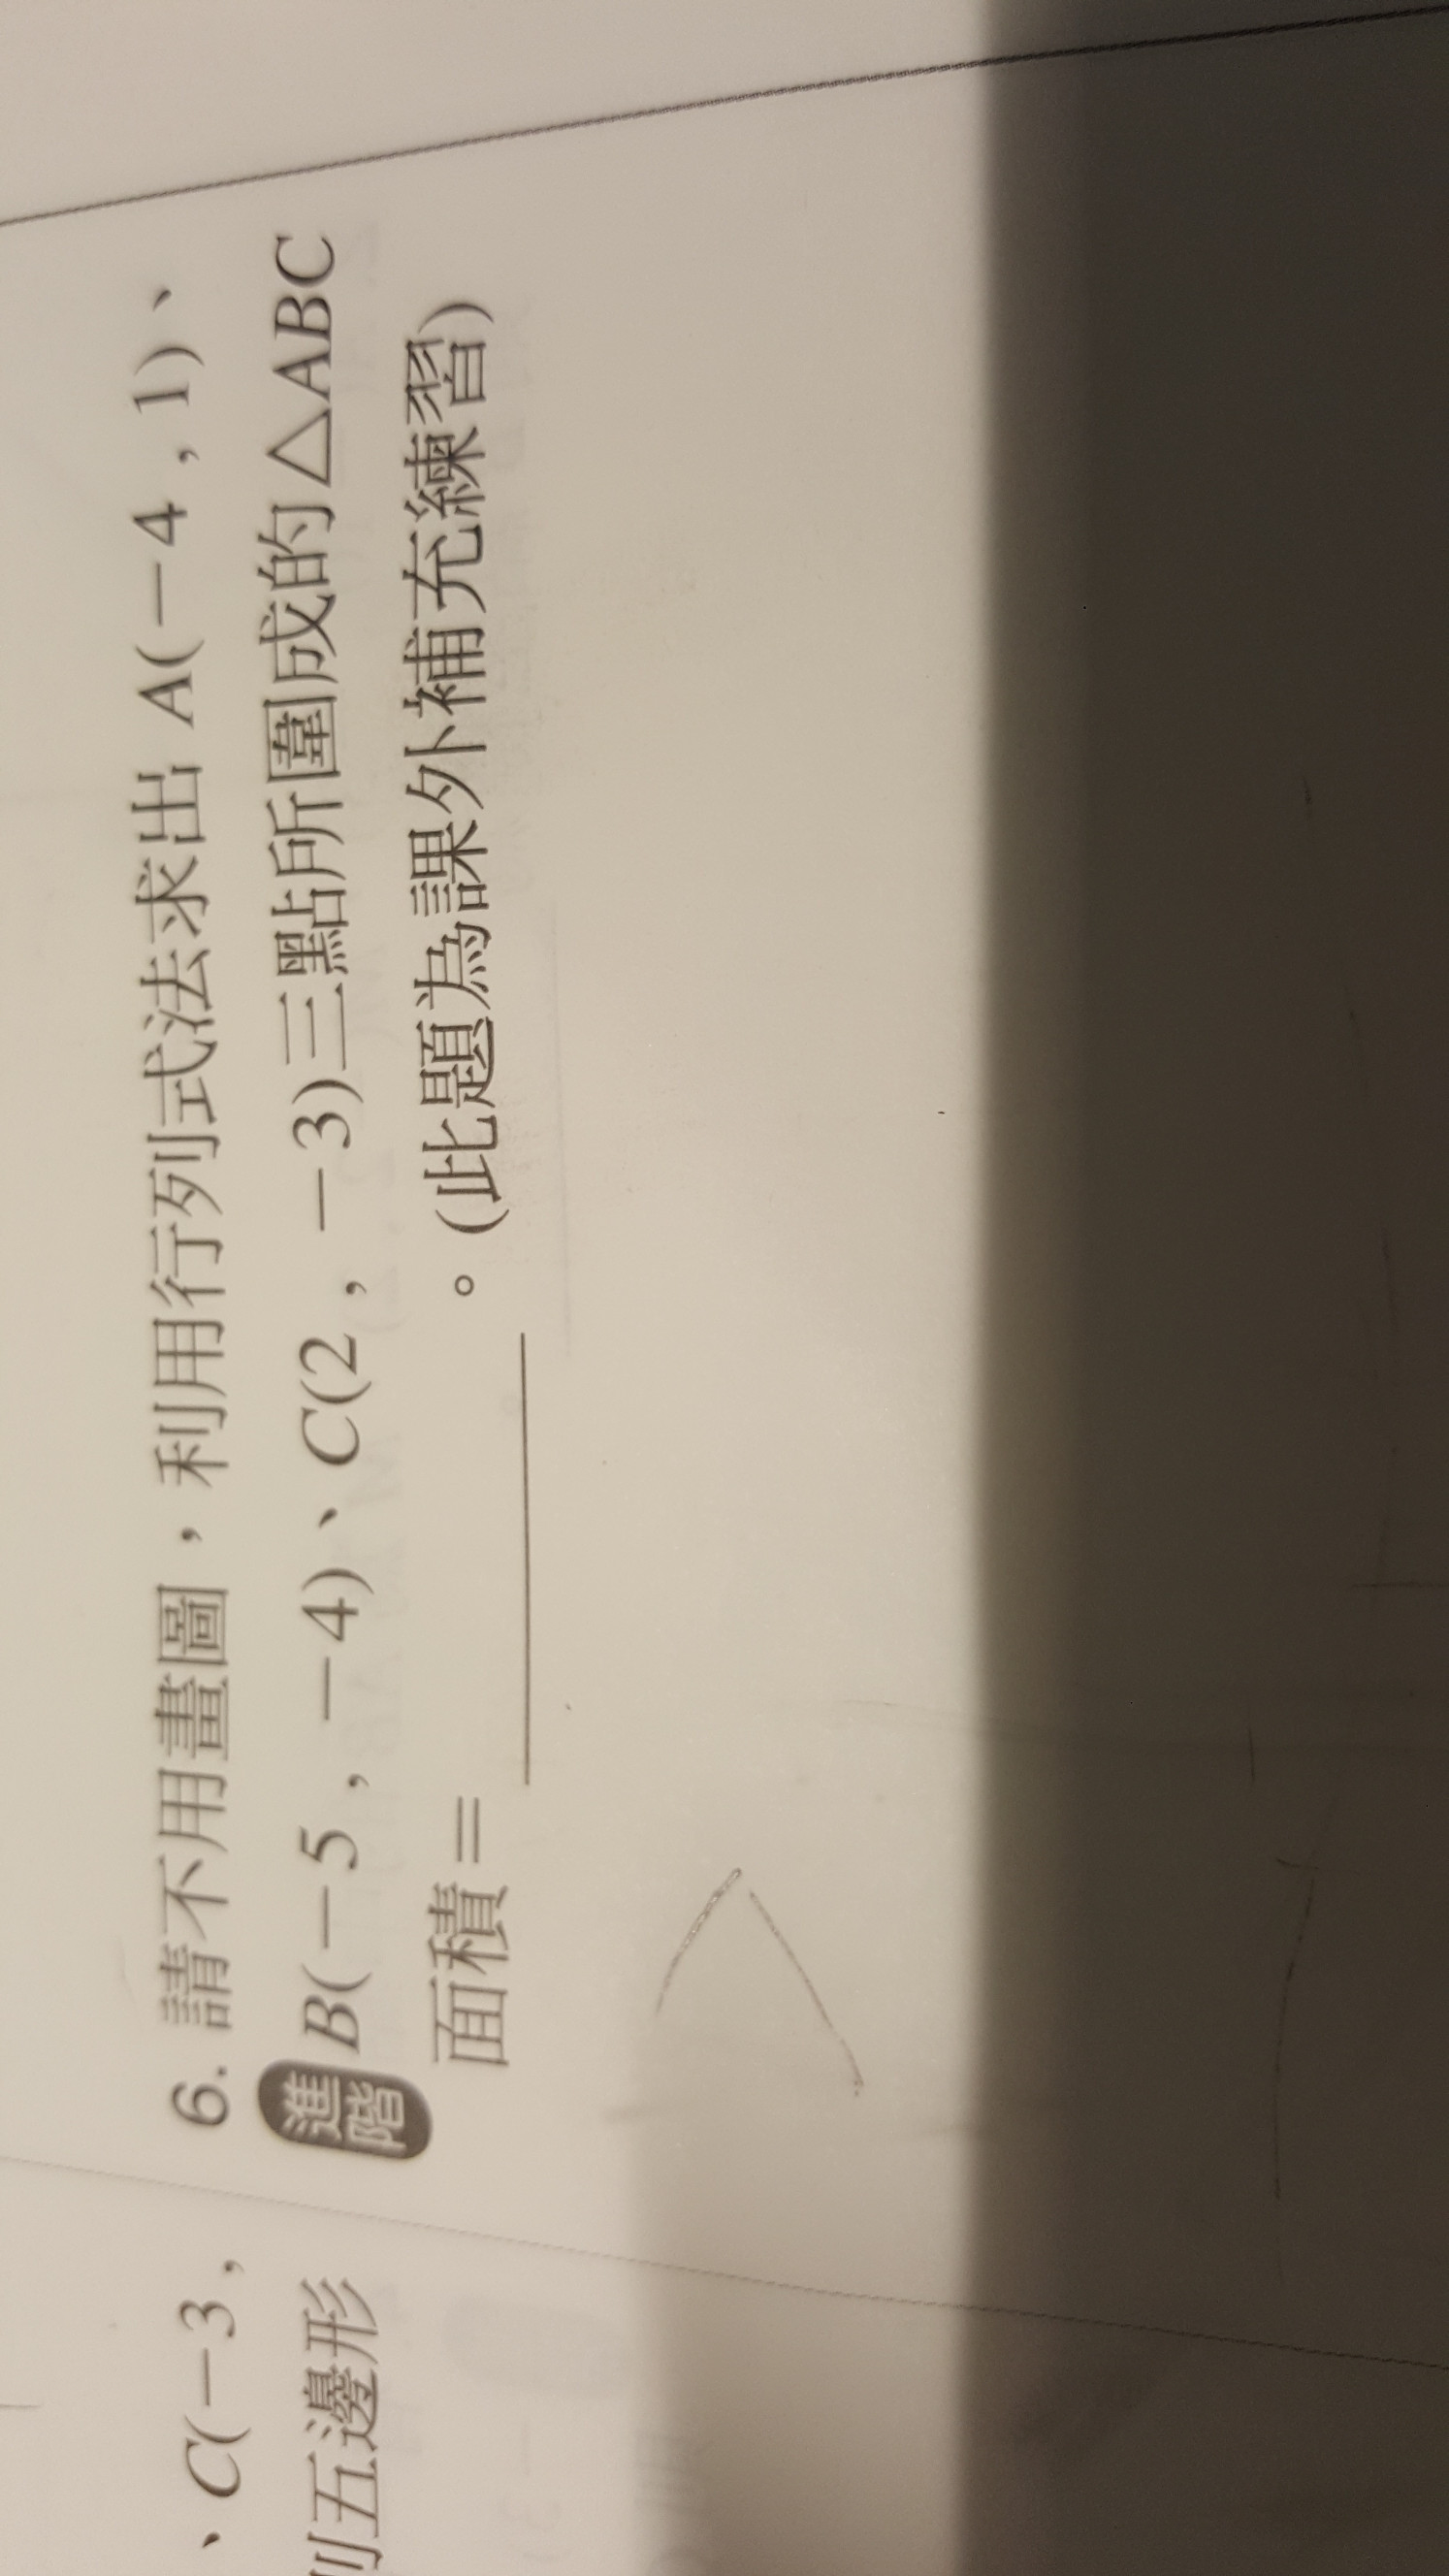 6. 請不用畫圖，利用行列式法求出 A(－4，1)、
進階 B(－5，－4)、C(2，－3)三點所圍成的△ABC
面積＝＿＿＿＿＿。(此題為課外補充練習)
、C(－3，
列五邊形